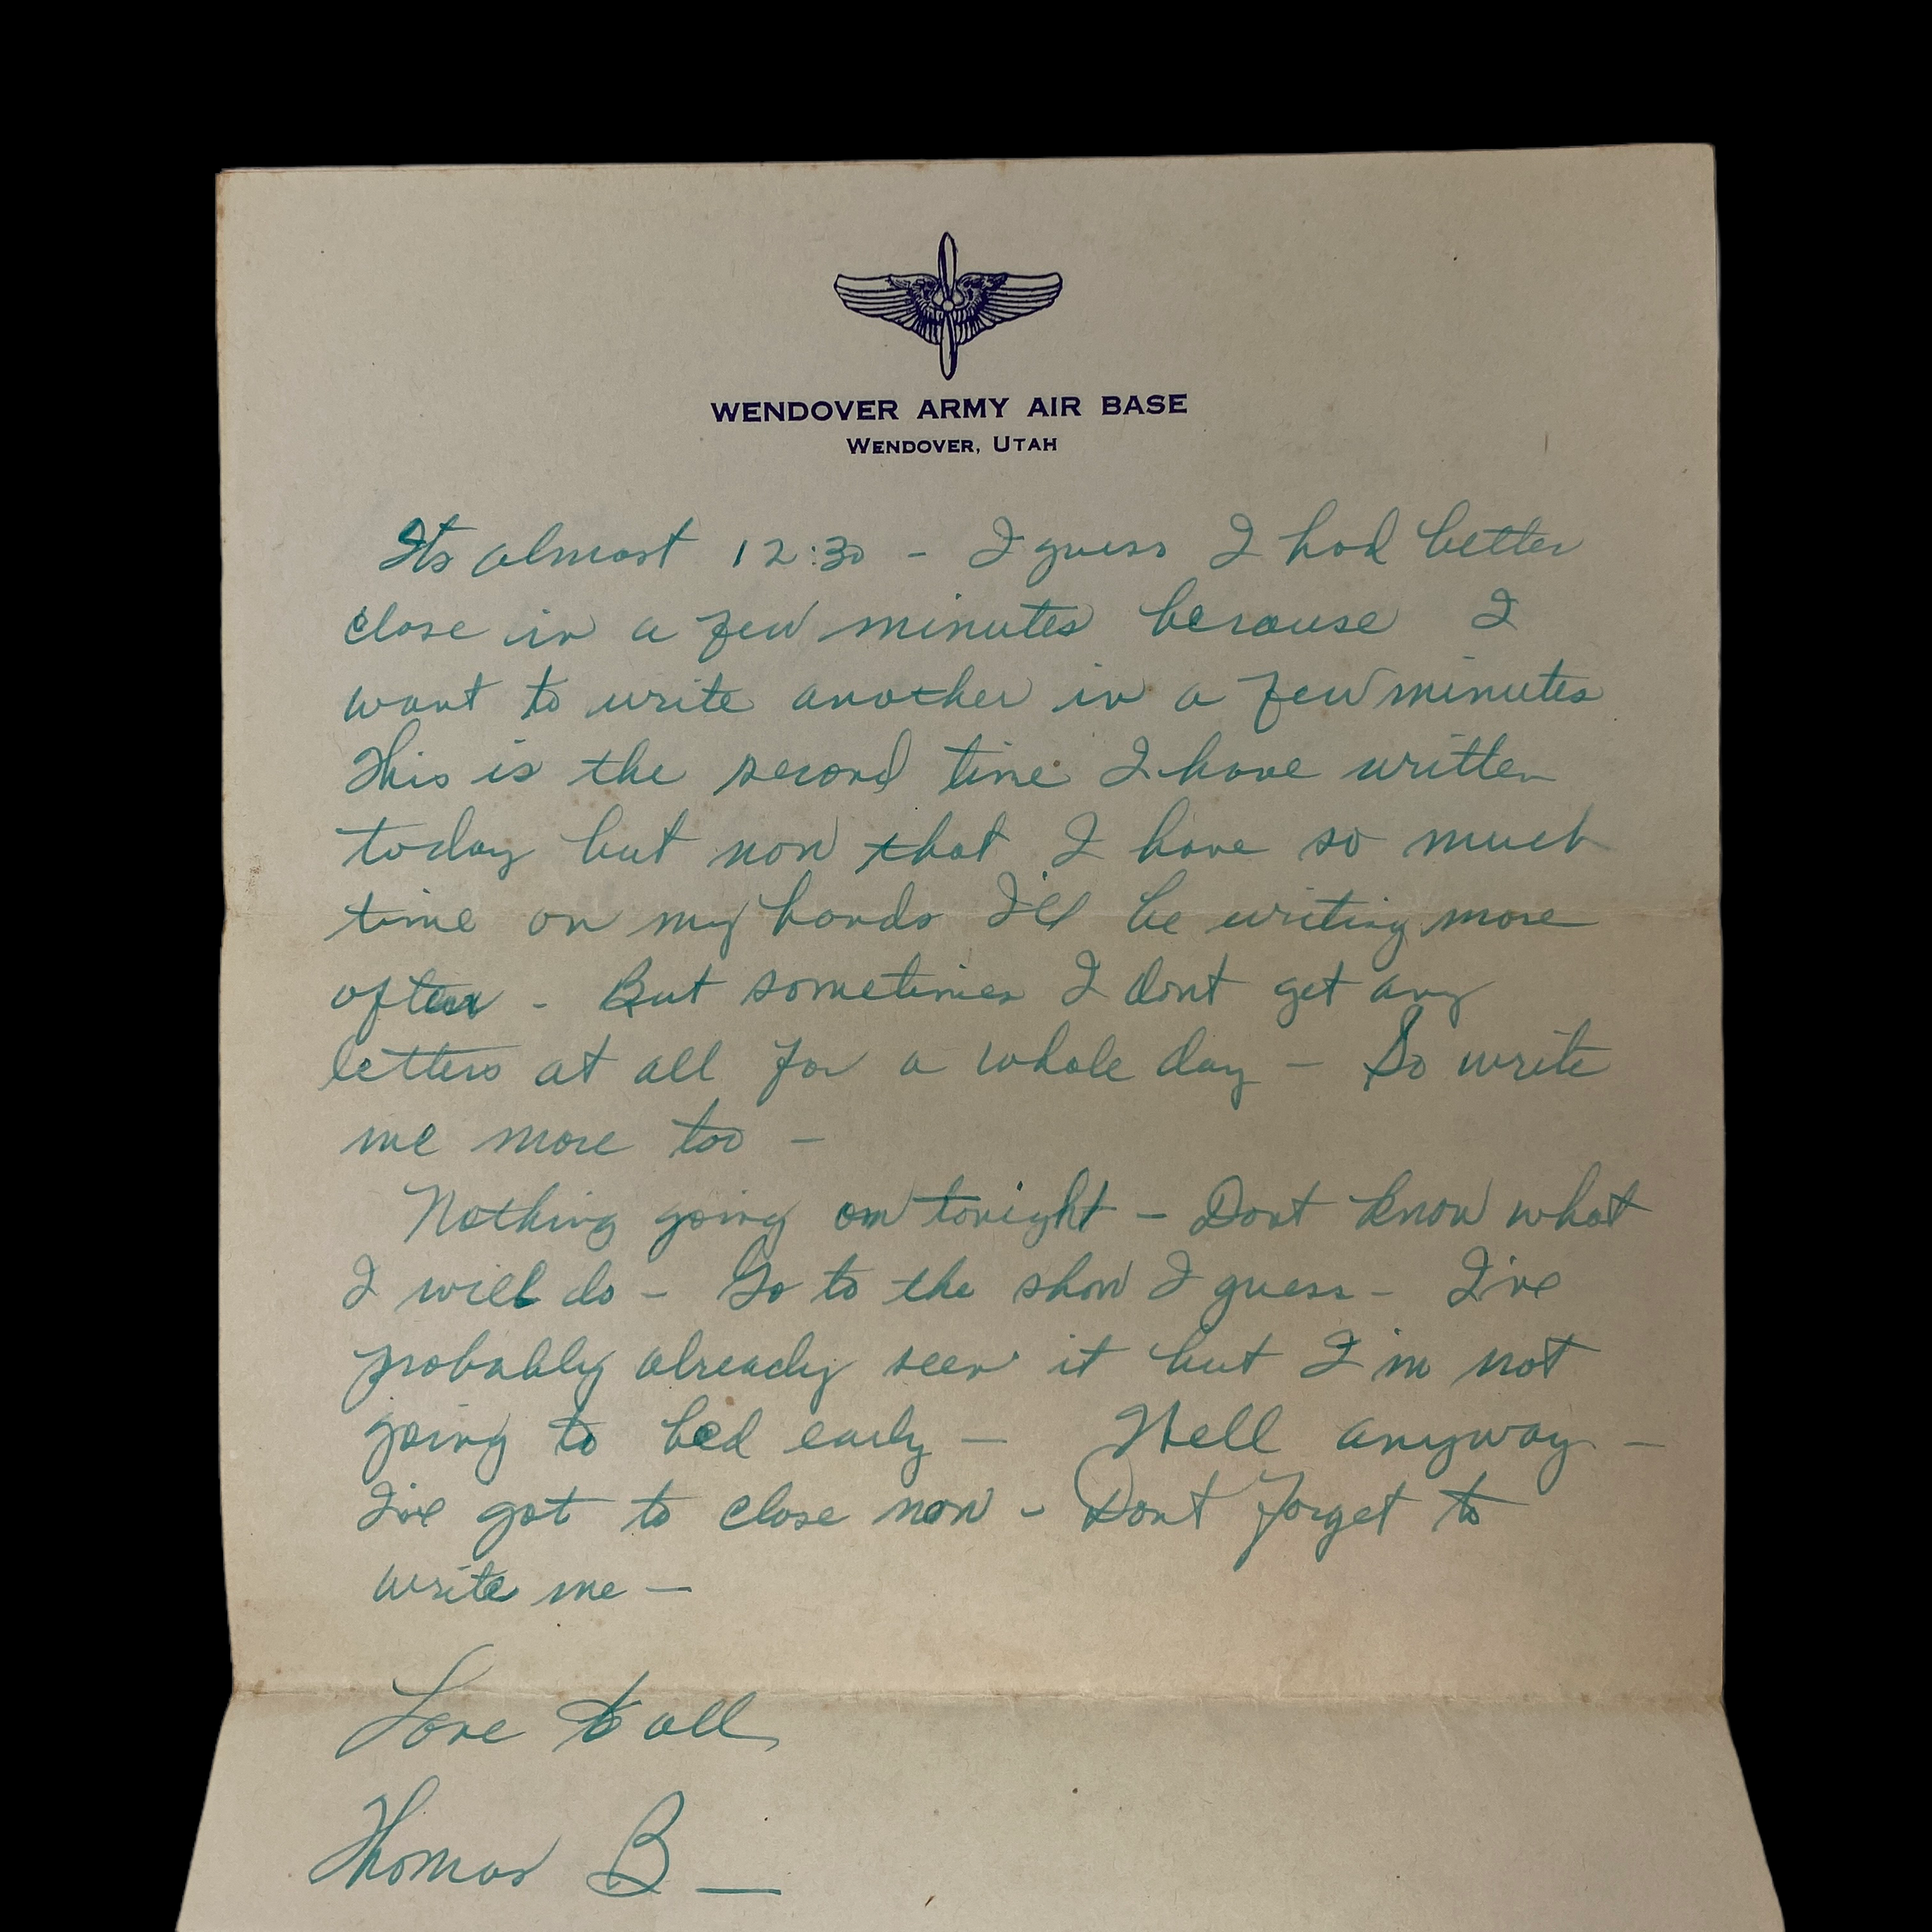 WENDOVER ARMY AIR BASE
WENDOVER, UTAH
Its almost 12:30 - I guess I had better
close in a few minutes because I
want to write another in a few minutes
This is the second time I have written
today but now that I have so much
time on my hands I'll be writing more
often - But sometimes I dont get any
letters at all for a whole day - So write
me more too -
Nothing going on tonight - Dont know what
I will do - Go to the show I guess - I've
probably already seen it but I'm not
going to bed early - Well anyway -
I've got to close now - Dont forget to
write me -
Love to all
Thomas B_